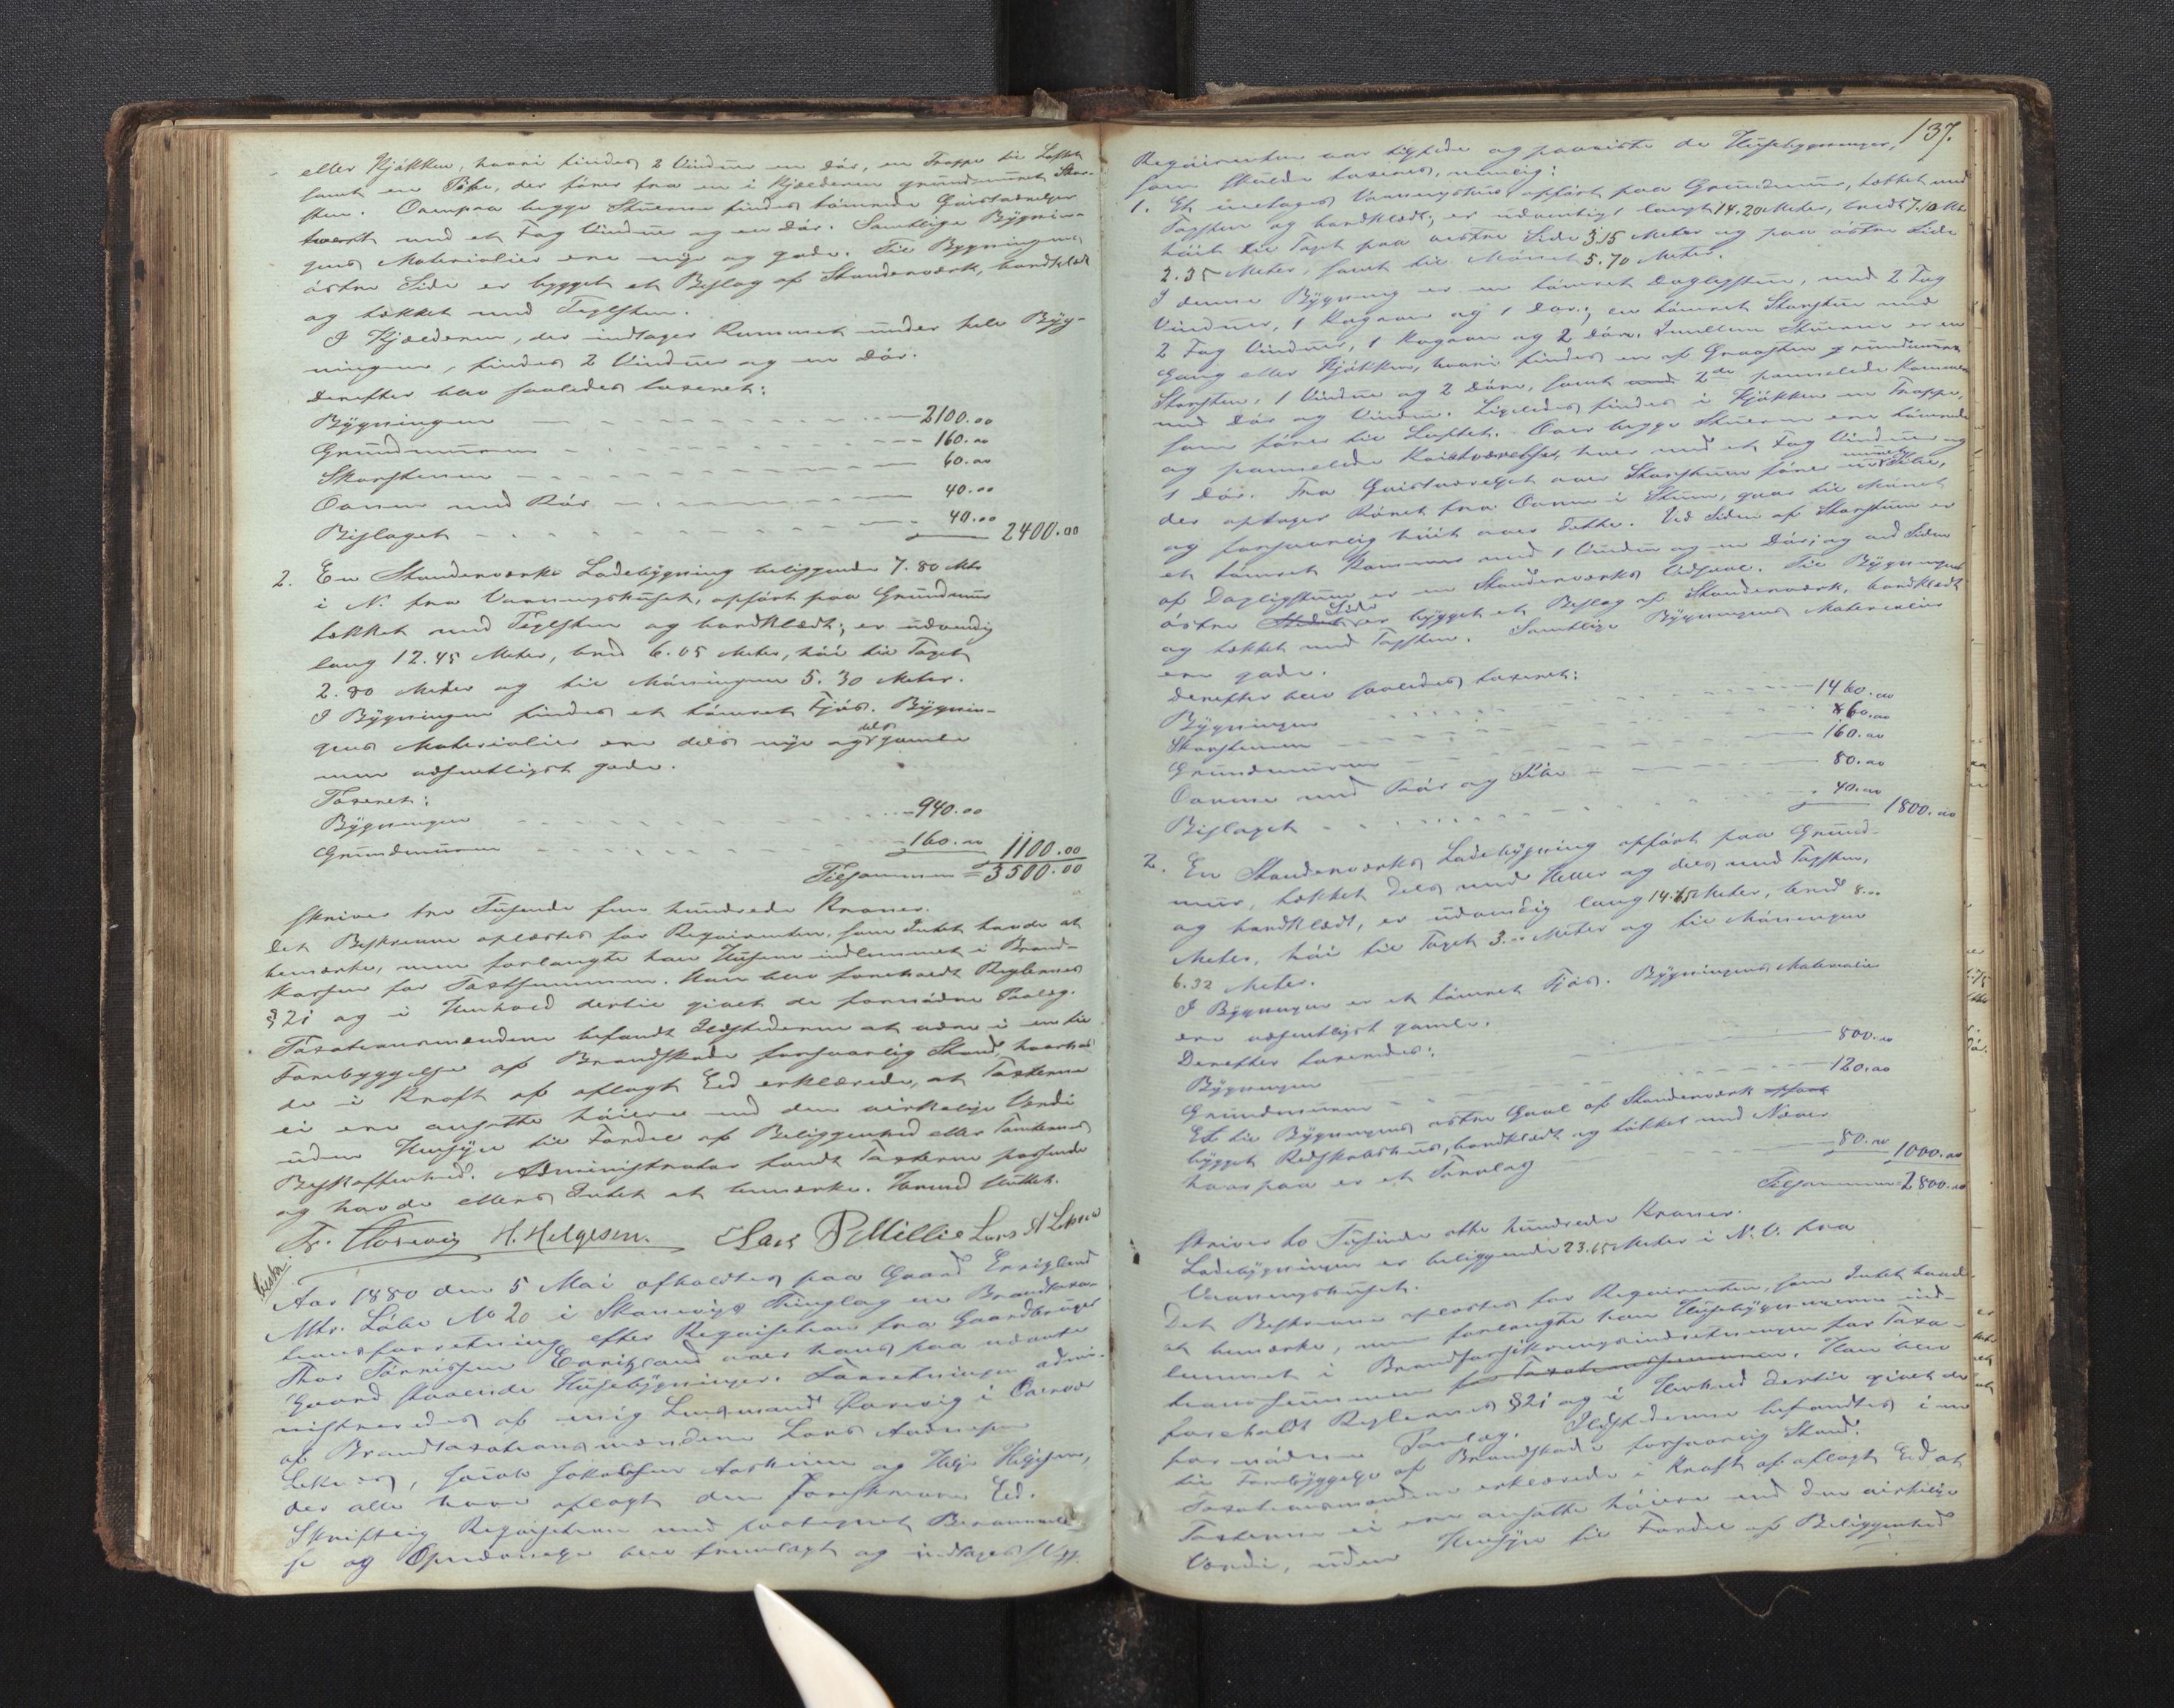 eller Kjøkken, hvori findes 2 Vinduer en Dør, en Trappe til Loftet
samt en Pibe, der fører fra en i Kjælderen grundmuret Skor-
sten. Ovenpaa begge Stuerne findes tømrede Gaistværelser
hvert med et Fag Vinduer og en Dør. Samtlige Bygnin-
gens Materialier ere nye og gode. Til Bygningens
østre Side er bygget et Bislag af Standerværk, bordklædt
og tækket med Teglsten.
I Kjælderen, der indtager Rummet under hele Byg-
ningen, findes 2 Vinduer og en Dør.
Derefter blev saaledes taxeret:
Bygningen 2100.00
Grundmuren 160.00
Skorstenen 60.00
Ovnen med Rør 40.00
Bislaget 40.00 2400.00
2. En Standerværks Ladebygning beliggende 7.80 Mtr
i N. fra Vaaningshuset, opført paa Grundmur
tækket med Teglsten og bordklædt; er udvendig
lang 12.45 Meter, bred 6.05 Meter, høi til Taget
2.80 Meter og til Møningen 5.30 Meter.
I Bygningen findes et tømret Fjøs. Bygnin-
gens Materialier ere dels nye og dels gamle
men væsentligst gode.
Taxeret:
Bygningen 940.00
Grundmuren 160.00 1100.00
Tilsammen = 3500.00
skriver tre Tusende fem hundrede Kroner.
Det Beskrevne oplæstes for Reqvirenten, som Intet havde at
bemærke, men forlangte han Husene indlemmet i Brand-
kassen for Taxtsummen. Han blev foreholdt Reglernes
§ 21 og i Henhold dertil givet de fornødne Paalæg.
Taxationsmændene befandt Ildstederne at være i en til
Forebyggelse af Brandskade forsvarlig Stand, hvorhos
de i Kraft af aflagt Eed erklærede, at Taxterne
ei ere ansatte høiere end den virkelige Værdi
uden Hensyn til Fordel af Beliggenhed eller Tomternes
Beskaffenhed. Administrator fandt Taxterne passende
og havde ellers Intet at bemærke. Hermed sluttet.
H. Helgesen. Lars P Millie Lars A Lekn
Aar 1880 den 5 Mai afholdtes paa Gaard
Mtr. Løbe No 20 i Skonevigs Thinglag en Brandtaxa-
tionsforretning efter Reqvisition fra Gaardbruger
Thor Tørrissen over hans paa nævnte
Gaard staaende Husebygninger. Forretningen admi-
nistreredes af mig Lensmand i
af Brandtaxationsmændene Lars
Leknes, Jacob Jakobsen og Helge Helgesen,
der alle have aflagt den foreskrevne Eed.
Skriftlig Reqvisition med paategnet Berammel-
se og Opnævnelse blev fremlagt og indtages

137.
Reqvirenten var tilstede og paaviste de Husebygninger,
som skulde taxeres, nemlig:
1. Et enetages Vaaningshus opført paa Grundmur, tækket med
Tagsten og bordklædt; er udvendigt langt 14.20 Meter, bredt 7.10 Mtr
høit til Taget paa vestre Side 3.15 Meter og paa østre Side
2.35 Meter, samt til Mønet 5.70 Meter.
I denne Bygning er en tømret Daglgstue, med 2 Fag
Vinduer, 1 Kogovn og 1 Dør; en tømret Storstue med
2 Fag Vinduer, 1 Kogovn og 2 Døre. Imellem Stuerne er en
Gang eller Kjøkken, hvori findes en af Graasten grundmuret
Skorsten, 1 Vindue og 2 Døre, samt med 2de pannelede Kammere
med Dør og Vindue. Ligeledes findes i Kjøkken en Trappe,
som fører til Loftet. Over begge Stuerne ere tømrede
og pannelede Kvistværelser, hver med et Fag Vinduer og
1 Dør. Fra Gaistværelset over Storstuen fører en muret Pibe,
der optager Røret fra Ovnen i Stuen, gaar til Mønet
og forsvarlig høit over dette. Ved Siden af Storstuen er
et tømret Kammer med 1 Vindue og en Dør; og ved Siden
af Dagligstuen er en Standerværks Udsval. Til Bygningens
østre Stedet Side er bygget et Bislag af Standerværk, bordklædt
og tækket med Tagsten. Samtlige Bygningens Materialier
ere gode.
Derefter blev saaledes taxeret:
Bygningen 1460.00
Skorstenen 60.00
Grundmuren 160.00
Ovnene med Rør og Pibe 80.00
Bislaget 40.00 1800.00
2. En Standerværks Ladebygning opført paa Grund-
mur, tækket dels med Heller og dels med Tagsten,
og bordklædt, er udvendig lang 14.65 Meter, bred 8.00
Meter, høi til Taget 3.00 Meter og til Møningen
6.32 Meter.
I Bygningen er et tømret Fjøs. Bygningens Materialie
ere væsentligst gamle.
Derefter taxeredes:
Bygningen 800.00
Grundmuren 120.00
Et til Bygningens østre Gavl af Standerværk opført
bygget Redskabshus, bordklædt og tækket med Næver
hvorpaa er et Torvlag 80.00 1000.00
Tilsammen = 2800.00
skriver to Tusinde otte hundrede Kroner.
Ladebygningen er beliggende 23.65 Meter i N.V. fra
Vaaningshuset.
Det Beskrevne oplæstes for Reqvirenten, som Intet havde
at bemærke, men forlangte han Husebygningerne ind-
lemmet i Brandforsikringsindretningen for Taxa-
tionssummen for Taxationssummen. Han blev
foreholdt Reglernes § 21 og i Henhold dertil givet de
fornødne Paalæg. Ildstederne befandtes i en
til Forebyggelse af Brandskade forsvarlig Stand.
Taxationsmændene erklærede i Kraft af aflagt Eed at
Taxterne ei ere ansatte høiere end den virkelige
Værdi, uden Hensyn til Fordel af Beliggenhed